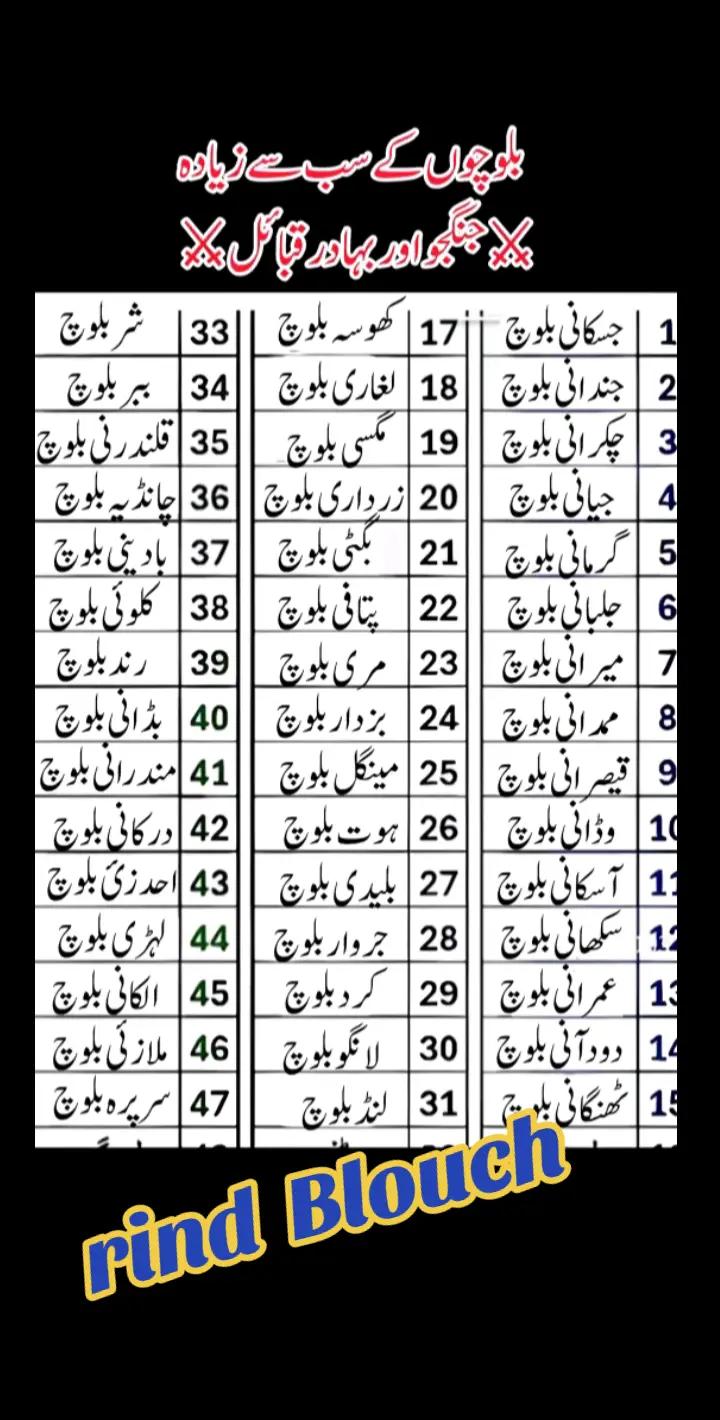 بلوچوں کے سب سے زیادہ
جنگجو اور بہادر قبائل
1 جسکانی بلوچ
2 جندانی بلوچ
3 چکرانی بلوچ
4 جیانی بلوچ
5 گرمانی بلوچ
6 جلبانی بلوچ
7 میرانی بلوچ
8 ممدانی بلوچ
9 قیصرانی بلوچ
10 وڈانی بلوچ
11 آسکانی بلوچ
12 سکھانی بلوچ
13 عمرانی بلوچ
14 دودآنی بلوچ
15 ٹھنگانی بلوچ
17 کھوسہ بلوچ
18 لغاری بلوچ
19 مگسی بلوچ
20 زرداری بلوچ
21 بگٹی بلوچ
22 پتافی بلوچ
23 مری بلوچ
24 بزدار بلوچ
25 مینگل بلوچ
26 ہوت بلوچ
27 بلیدی بلوچ
28 جروار بلوچ
29 کرد بلوچ
30 لانگو بلوچ
31 لنڈ بلوچ
33 شر بلوچ
34 ببر بلوچ
35 قلندرنی بلوچ
36 چانڈیہ بلوچ
37 بادینی بلوچ
38 کلوئی بلوچ
39 رند بلوچ
40 بڈانی بلوچ
41 مندرانی بلوچ
42 درکانی بلوچ
43 احدزئ بلوچ
44 لہڑی بلوچ
45 الکانی بلوچ
46 ملازئی بلوچ
47 سرپرہ بلوچ
rind Blouch